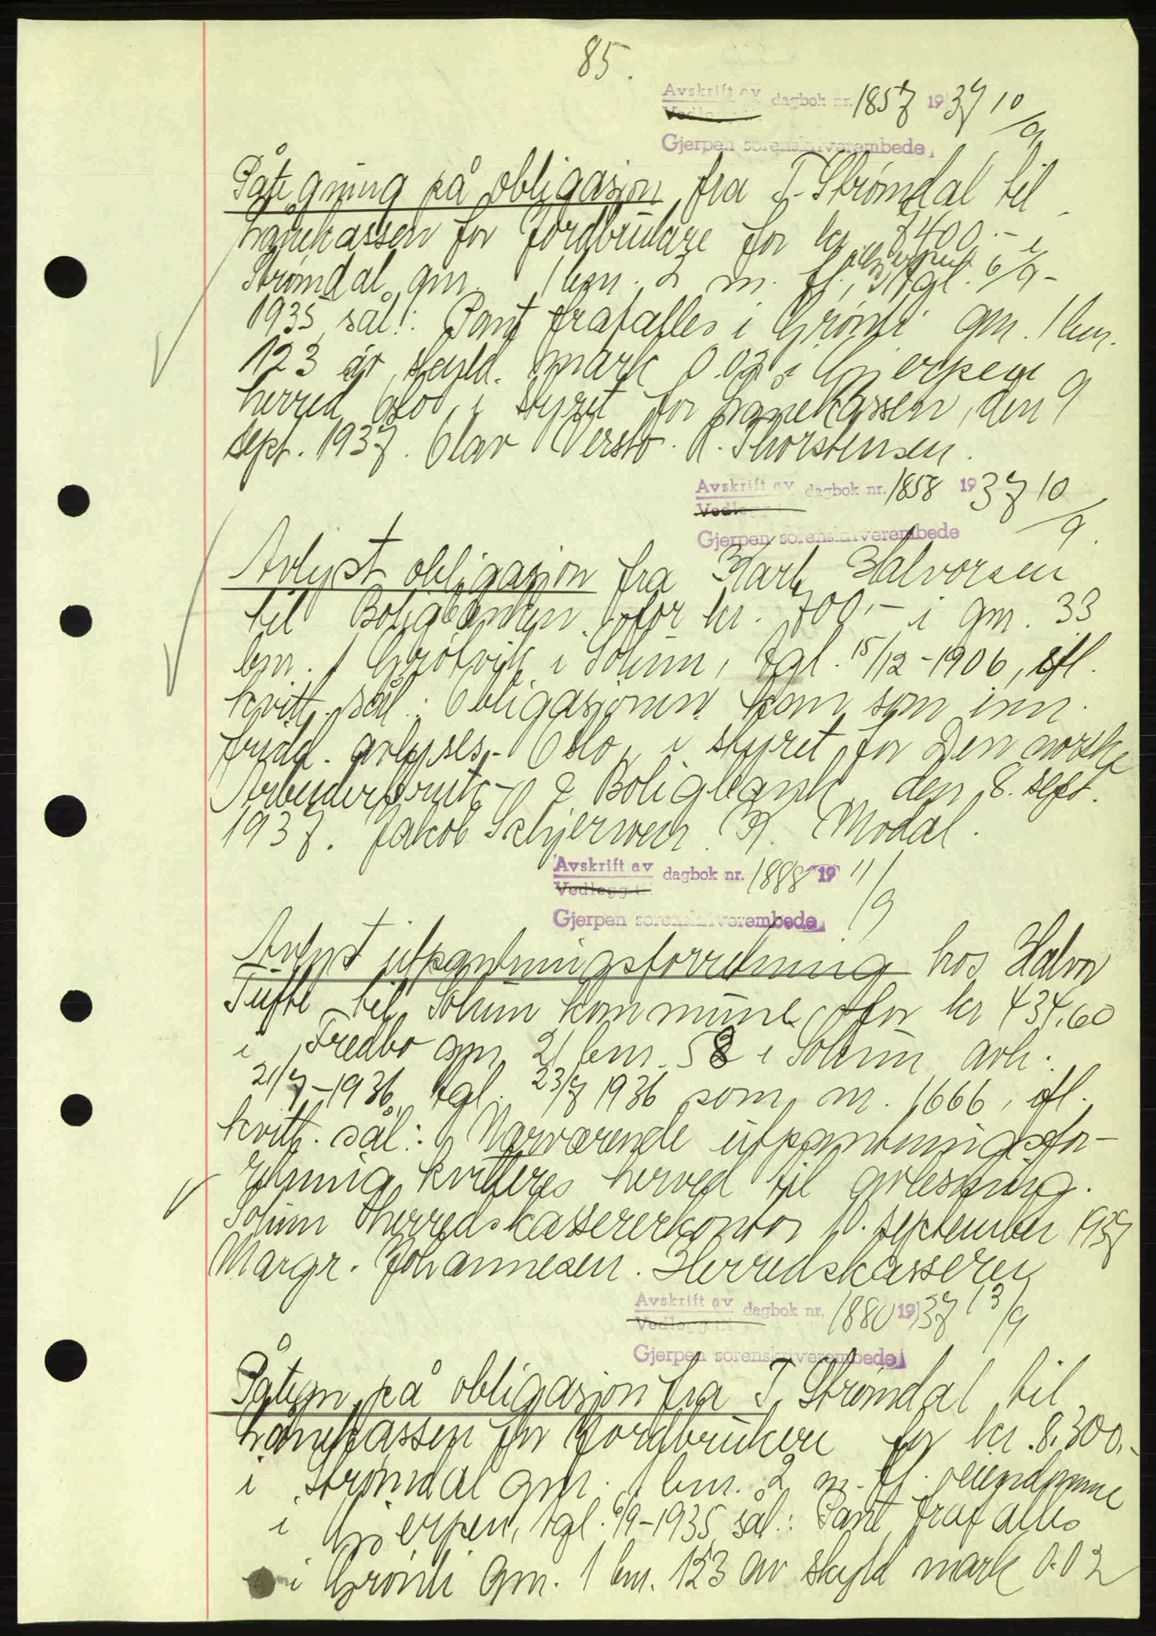 85.
Avskrift av dagbok nr. 1857 1937 10/9
Vedlegg til
Gjerpen sorenskriverembede.
Påtegning på obligasjon fra T. Strømdal til
Lånekassen for Jordbrukare for kr. 8400.- i
Strømdal gm. 1 bnr. 2 m. fl., tgl. 6/9-
1935 sål.: Pant frafalles i Grønli gm. 1 bnr.
123 av skyld mark 0.02 i Gjerpen
herred. Oslo, i styret for Lånekassen, den 9
sept. 1937. Olav Versto. R. Thorstensen.
Avskrift av dagbok nr. 1858 1937 10/9.
Vedlegg til
Gjerpen sorenskriverembede
Avlyst obligasjon fra Karl Halvorsen
til Boligbanken for kr. 700.- i gm. 33
bnr. 1 Grotvik i Solum, tgl. 15/12-1906, ifl.
kvitt. sål.: Obligasjonen kan som inn-
fridd avlyses. Oslo, i styret for Den norske
Arbeiderbruk- & Boligbank, den 8. sept.
1937. Jakob Schjerven. K. Modal.
Avskrift av dagbok nr. 1888 19 11/9
Vedlegg til
Gjerpen sorenskriverembede
Avlyst utpantningsforretning hos Halvor
Tufte til Solum kommune for kr 434,60
i Fredbo gm. 21 bnr. 58 i Solum, avh.
21/7-1936, tgl. 23/7 1936 som nr. 1666, ifl.
kvitt. sål.: Nærværende utpantningsfor-
retning kvitteres herved til avlesning.
Solum herredskassererkontor 10. september 1937
Margr. Johannesen. Herredskasserer
Avskrift av dagbok nr. 1880 1937 13/9
Vedlegg til
Gjerpen sorenskriverembede
Påtegn. på obligasjon fra T. Strømdal til
Lånekassen for Jordbrukere for kr. 8.300.-
i Strømdal gm. 1 bnr. 2 m. fl. eiendomme
i Gjerpen, tgl. 6/9-1935 sål.: Pant frafalles
i Grønli gm. 1 bnr. 123 av skyld mark 0.02